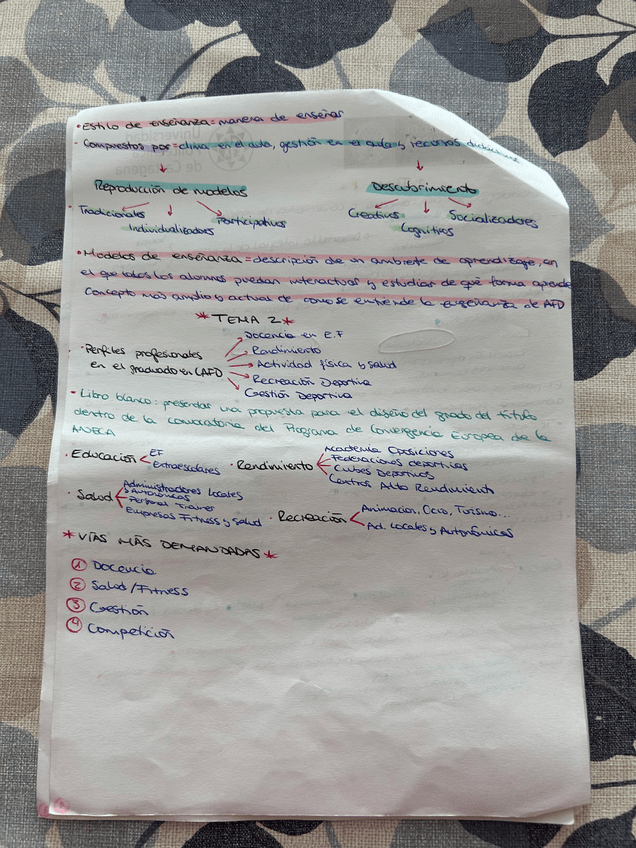 • Estilo de enseñanza = manera de enseñar
• Compuestos por = clima en el aula, gestión en el aula y recursos didácticos
Reproducción de modelos
Descubrimiento
• Tradicionales
Individualizadores
Participativos
Creativos
Cognitivos
Socializadores
• Modelos de enseñanza = descripción de un ambiente de aprendizaje, en
el que todos los alumnos puedan interactuar y estudiar de qué forma aprende
Concepto más amplio y actual de como se entiende la enseñanza de AFD
* TEMA 2 *
• Perfiles profesionales
en el graduado en CAFD
Docencia en E.F
Rendimiento
Actividad física y salud
Recreación Deportiva
Gestión Deportiva
• Libro blanco: presentar una propuesta para el diseño del grado del título
dentro de la convocatoria del Programa de Convergencia Europea de la
ANECA
• Educación
EF
Extraescolares
• Rendimiento
Academia Oposiciones
Federaciones deportivas
Clubes Deportivos
Centros Alto Rendimiento
• Salud
Administradores Locales
y Autonómicas
Personal Trainer
Empresas Fitness y salud
• Recreación
Animación, Ocio, Turismo...
Ad. Locales y Autonómicas
* VÍAS MÁS DEMANDADAS *
① Docencia
② Salud/Fitness
③ Gestión
④ Competición